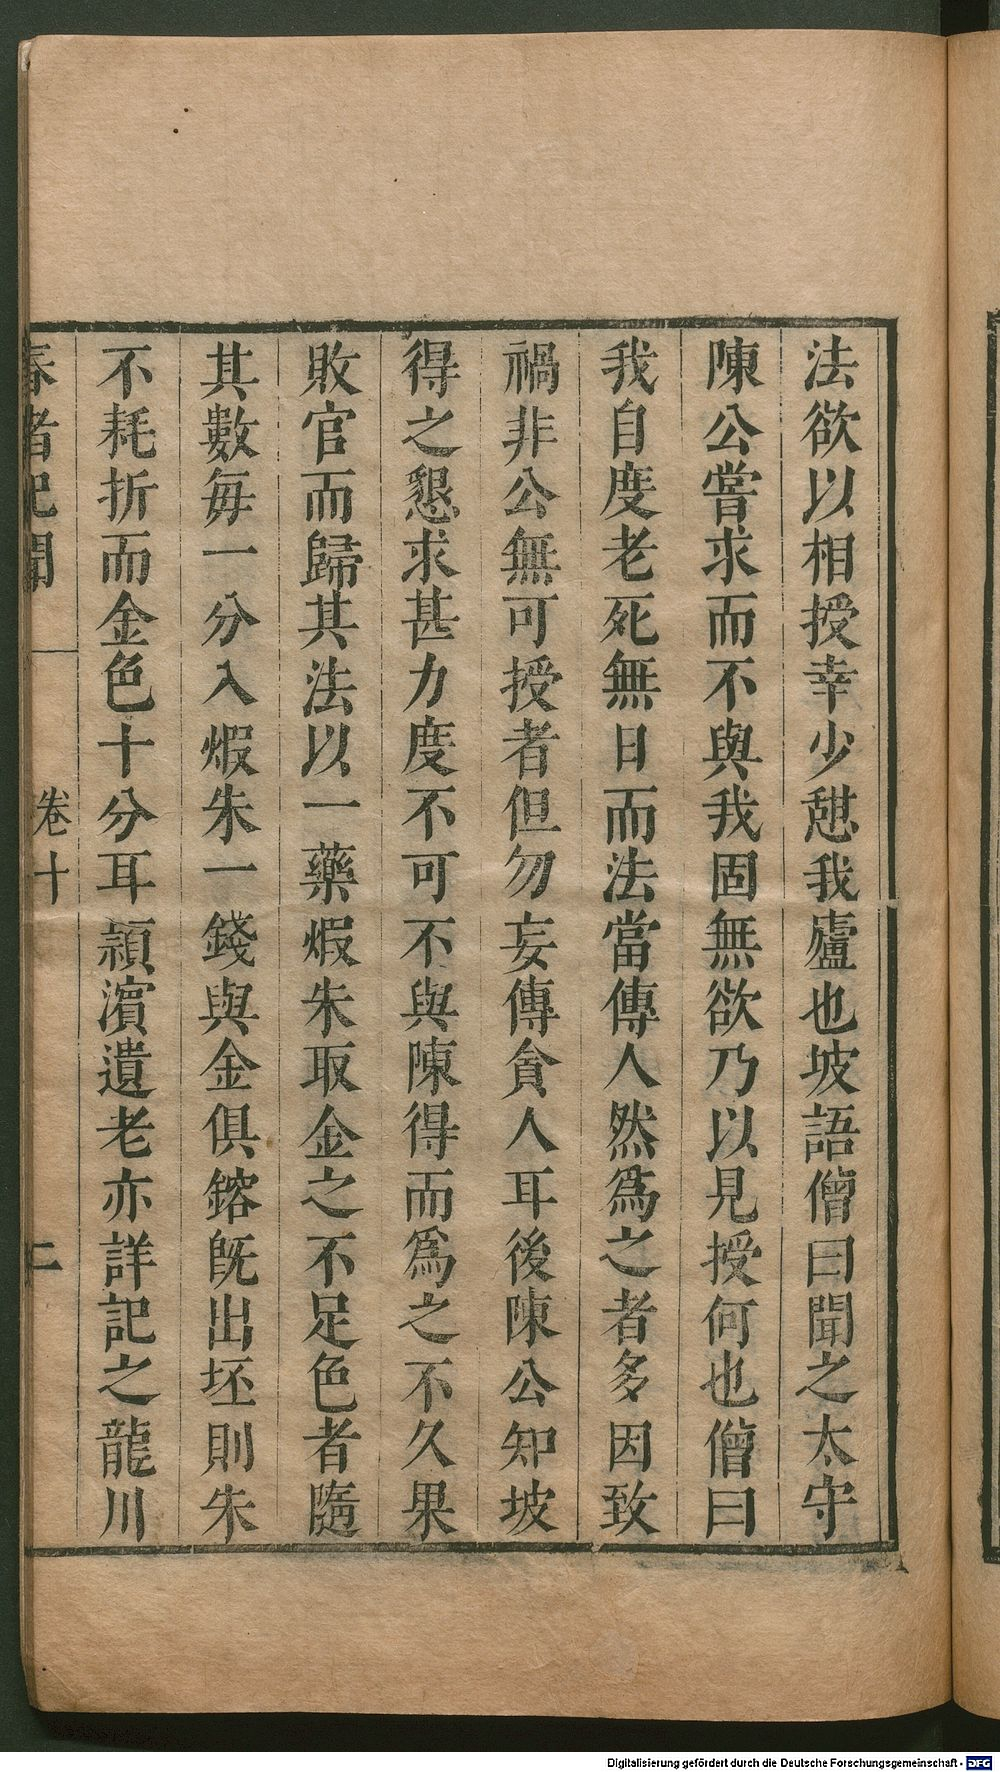 法欲以相授幸少憇我廬也坡語僧曰聞之太守
陳公嘗求而不與我固無欲乃以見授何也僧曰
我自度老死無日而法當傳人然爲之者多因致
禍非公無可授者但勿妄傳貪人耳後陳公知坡
得之懇求甚力度不可不與陳得而爲之不久果
敗官而歸其法以一藥煅朱取金之不足色者隨
其數每一分入煅朱一錢與金俱鎔旣出坯則朱
不耗折而金色十分耳潁濱遺老亦詳記之龍川
春渚紀聞 卷十 二
Digitalisierung gefördert durch die Deutsche Forschungsgemeinschaft - DFG